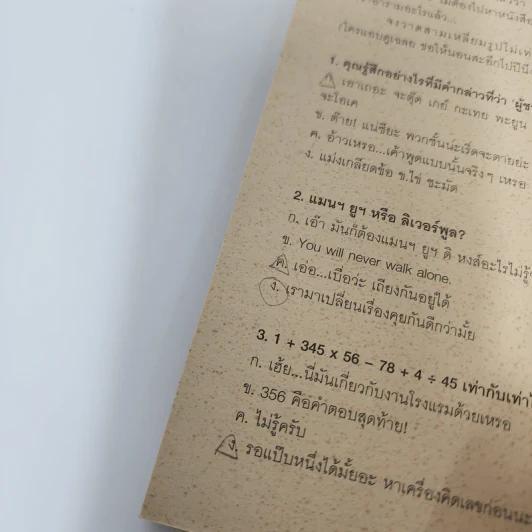 จงวาดสามเหลี่ยมรูปไม่เท่
(ใครแอบดูเฉลย ขอให้นอนสะอึกไปปีนึง
1. คุณรู้สึกอย่างไรที่มีคำกล่าวที่ว่า 'ผู้ช
ก. เอาเถอะ จะตุ๊ด เกย์ กะเทย พะยูน
จะโอเค
ข. ต๊าย! แน่ซียะ พวกชั้นน่ะเริ่ดจะตายย่ะ
ค. อ้าวเหรอ...เค้าพูดแบบนั้นจริงๆ เหรอ
ง. แม่งเกลียดข้อ ข.ไข่ ชะมัด
2. แมนฯ ยูฯ หรือ ลิเวอร์พูล?
ก. เอ๊า มันก็ต้องแมนฯ ยูฯ ดิ หงส์อะไรไม่รู้
ข. You will never walk alone.
ค. เอ่อ...เบื่อว่ะ เถียงกันอยู่ได้
ง. เรามาเปลี่ยนเรื่องคุยกันดีกว่ามั้ย
3. 1 + 345 x 56 – 78 + 4 ÷ 45 เท่ากับเท่า
ก. เฮ้ย...นี่มันเกี่ยวกับงานโรงแรมด้วยเหรอ
ข. 356 คือคำตอบสุดท้าย!
ค. ไม่รู้ครับ
ง. รอแป๊บหนึ่งได้มั้ยอะ หาเครื่องคิดเลขก่อนนะ